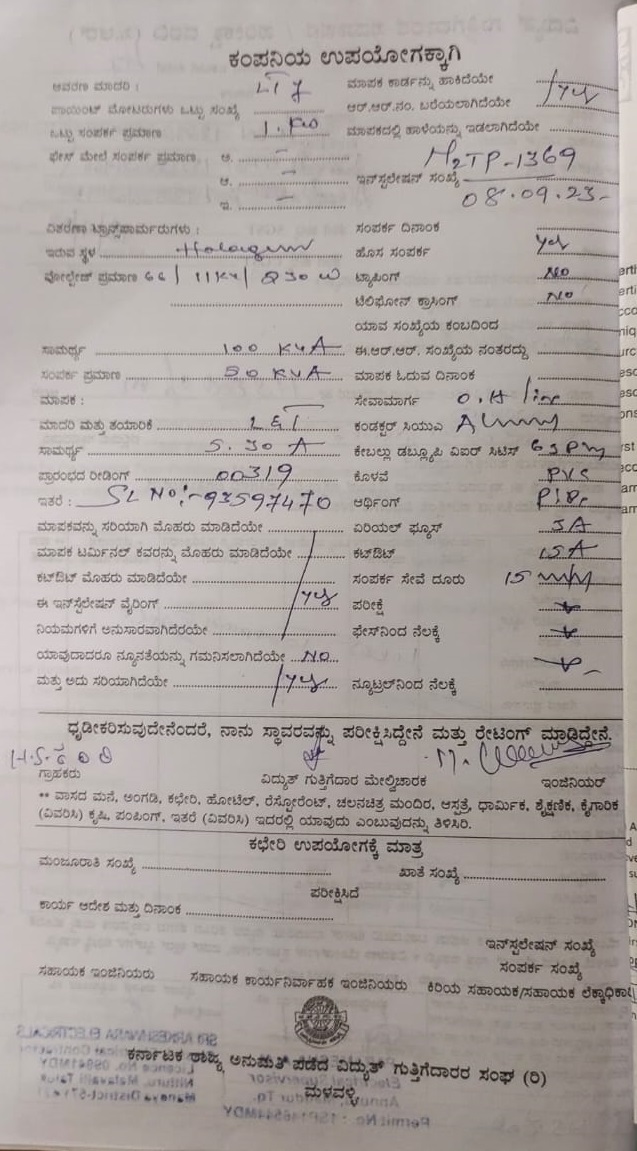 ಕಂಪನಿಯ ಉಪಯೋಗಕ್ಕಾಗಿ
ಆವರಣ ಮಾದರಿ : LT
ಮಾಪಕ ಕಾರ್ಡನ್ನು ಹಾಕಿದೆಯೇ
ಪಾಯಿಂಟ್ ಮೋಟರುಗಳು ಒಟ್ಟು ಸಂಖ್ಯೆ
ಆರ್.ಆರ್.ನಂ. ಬರೆಯಲಾಗಿದೆಯೇ yes
ಒಟ್ಟು ಸಂಪರ್ಕ ಪ್ರಮಾಣ
ಮಾಪಕದಲ್ಲಿ ಹಾಳೆಯನ್ನು ಇಡಲಾಗಿದೆಯೇ
ಫೇಸ್ ಮೇಲೆ ಸಂಪರ್ಕ ಪ್ರಮಾಣ ಅ. –
ಆ. – ಇನ್‌ಸ್ಟಲೇಷನ್ ಸಂಖ್ಯೆ H2TP-1369
ಇ. – 08.09.23-
ವಿತರಣಾ ಟ್ರಾನ್ಸ್‌ಫಾರ್ಮರುಗಳು :
ಸಂಪರ್ಕ ದಿನಾಂಕ
ಇರುವ ಸ್ಥಳ
ಹೊಸ ಸಂಪರ್ಕ yes
ವೋಲ್ಟೇಜ್ ಪ್ರಮಾಣ 66/11KV/230
ಟ್ಯಾಪಿಂಗ್ NO
ಟೆಲಿಫೋನ್ ಕ್ರಾಸಿಂಗ್ NO
ಯಾವ ಸಂಖ್ಯೆಯ ಕಂಬದಿಂದ
ಸಾಮರ್ಥ್ಯ 100 KVA
ಈ.ಆರ್.ಆರ್. ಸಂಖ್ಯೆಯ ನಂತರದ್ದು
ಸಂಪರ್ಕ ಪ್ರಮಾಣ 50 KVA
ಮಾಪಕ ಓದುವ ದಿನಾಂಕ
ಮಾಪಕ :
ಸೇವಾಮಾರ್ಗ O.H line
ಮಾದರಿ ಮತ್ತು ತಯಾರಿಕೆ L&T
ಕಂಡಕ್ಟರ್ ಸಿಯುಎ
ಸಾಮರ್ಥ್ಯ 5.30 A
ಕೇಬಲ್ಲು ಡಬ್ಲ್ಯೂಪಿ ವಿಐಆರ್ ಸಿಟಿಸ್
ಪ್ರಾರಂಭದ ರೀಡಿಂಗ್ 00319
ಕೊಳವೆ PVC
ಇತರೆ : SL NO:-93597470
ಅರ್ಥಿಂಗ್
ಮಾಪಕವನ್ನು ಸರಿಯಾಗಿ ಮೊಹರು ಮಾಡಿದೆಯೇ
ಏರಿಯಲ್ ಫ್ಯೂಸ್ 5A
ಮಾಪಕ ಟರ್ಮಿನಲ್ ಕವರನ್ನು ಮೊಹರು ಮಾಡಿದೆಯೇ
ಕಟ್‌ಔಟ್ 15A
ಕಟ್‌ಔಟ್ ಮೊಹರು ಮಾಡಿದೆಯೇ
ಸಂಪರ್ಕ ಸೇವೆ ದೂರು
ಈ ಇನ್‌ಸ್ಟಲೇಷನ್ ವೈರಿಂಗ್ yes
ಪರೀಕ್ಷೆ
ನಿಯಮಗಳಿಗೆ ಅನುಸಾರವಾಗಿದೆರಯೇ
ಫೇಸ್‌ನಿಂದ ನೆಲಕ್ಕೆ
ಯಾವುದಾದರೂ ನ್ಯೂನತೆಯನ್ನು ಗಮನಿಸಲಾಗಿದೆಯೇ NO
ಮತ್ತು ಅದು ಸರಿಯಾಗಿದೆಯೇ yes
ನ್ಯೂಟ್ರಲ್‌ನಿಂದ ನೆಲಕ್ಕೆ
ಧೃಡೀಕರಿಸುವುದೇನೆಂದರೆ, ನಾನು ಸ್ಥಾವರವನ್ನು ಪರೀಕ್ಷಿಸಿದ್ದೇನೆ ಮತ್ತು ರೇಟಿಂಗ್ ಮಾಡಿದ್ದೇನೆ.
ಗ್ರಾಹಕರು ವಿದ್ಯುತ್ ಗುತ್ತಿಗೆದಾರ ಮೇಲ್ವಿಚಾರಕ ಇಂಜಿನಿಯರ್
** ವಾಸದ ಮನೆ, ಅಂಗಡಿ, ಕಛೇರಿ, ಹೋಟೆಲ್, ರೆಸ್ಟೋರೆಂಟ್, ಚಲನಚಿತ್ರ ಮಂದಿರ, ಆಸ್ಪತ್ರೆ, ಧಾರ್ಮಿಕ, ಶೈಕ್ಷಣಿಕ, ಕೈಗಾರಿಕ
(ವಿವರಿಸಿ) ಕೃಷಿ, ಪಂಪಿಂಗ್, ಇತರೆ (ವಿವರಿಸಿ) ಇದರಲ್ಲಿ ಯಾವುದು ಎಂಬುವುದನ್ನು ತಿಳಿಸಿರಿ.
ಕಛೇರಿ ಉಪಯೋಗಕ್ಕೆ ಮಾತ್ರ
ಮಂಜೂರಾತಿ ಸಂಖ್ಯೆ ಖಾತೆ ಸಂಖ್ಯೆ
ಪರೀಕ್ಷಿಸಿದೆ
ಕಾರ್ಯ ಆದೇಶ ಮತ್ತು ದಿನಾಂಕ
ಇನ್‌ಸ್ಟಲೇಷನ್ ಸಂಖ್ಯೆ
ಸಂಪರ್ಕ ಸಂಖ್ಯೆ
ಸಹಾಯಕ ಇಂಜಿನಿಯರು ಸಹಾಯಕ ಕಾರ್ಯನಿರ್ವಾಹಕ ಇಂಜಿನಿಯರು ಕಿರಿಯ ಸಹಾಯಕ/ಸಹಾಯಕ ಲೆಕ್ಕಾಧಿಕಾರಿ
ಕರ್ನಾಟಕ ರಾಜ್ಯ ಅನುಮತಿ ಪಡೆದ ವಿದ್ಯುತ್ ಗುತ್ತಿಗೆದಾರರ ಸಂಘ (ರಿ)
ಮಳವಳ್ಳಿ